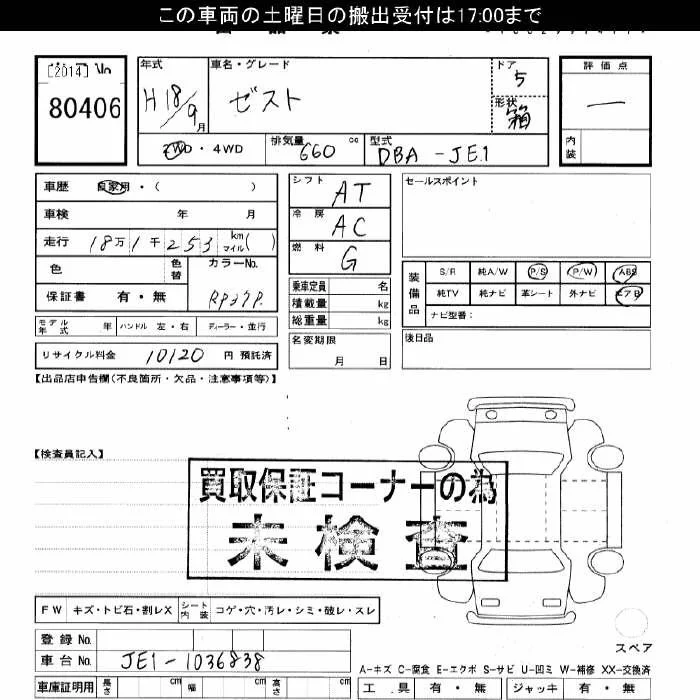 この車両の土曜日の搬出受付は17:00まで
[2014] No
80406
年式
H18/9月
車名・グレード
ゼスト
ドア
5
形状
箱
評価点
—
内装
2WD・4WD
排気量
660 cc
型式
DBA-JE1
車歴 自家用・( )
車検 年 月
走行 18万1千253 km マイル( )
色
色替
カラーNo.
RP37P.
保証書 有・無
モデル年式 年 ハンドル 左・右 ディーラー・並行
リサイクル料金 10120 円 預託済
シフト AT
冷房 AC
燃料 G
乗車定員 名
積載量 kg
総重量 kg
名変期限
月 日
セールスポイント
装備品
S/R 純A/W P/S P/W ABS
純TV 純ナビ 革シート 外ナビ エアB
ナビ型番:
後日品
【出品店申告欄(不良箇所・欠品・注意事項等)】
【検査員記入】
買取保証コーナーの為
未検査
FW キズ・トビ石・割レX シート内装 コゲ・穴・汚レ・シミ・破レ・スレ
登録 No.
車台 No. JE1-1036838
車庫証明用 長さ cm 幅 cm 高さ cm
スペア
A-キズ C-腐食 E-エクボ S-サビ U-凹ミ W-補修 XX-交換済
工具 有・無 ジャッキ 有・無